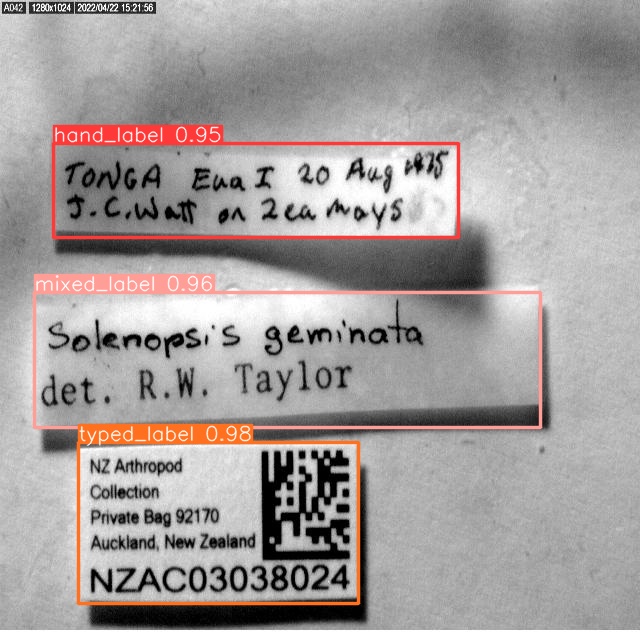 A042 1280x1024 2022/04/22 15:21:56
hand_label 0.95
TONGA Eua I 20 Aug 1975
J.C.Watt on Zea mays
mixed_label 0.96
Solenopsis geminata
det. R.W. Taylor
typed_label 0.98
NZ Arthropod
Collection
Private Bag 92170
Auckland, New Zealand
NZAC03038024